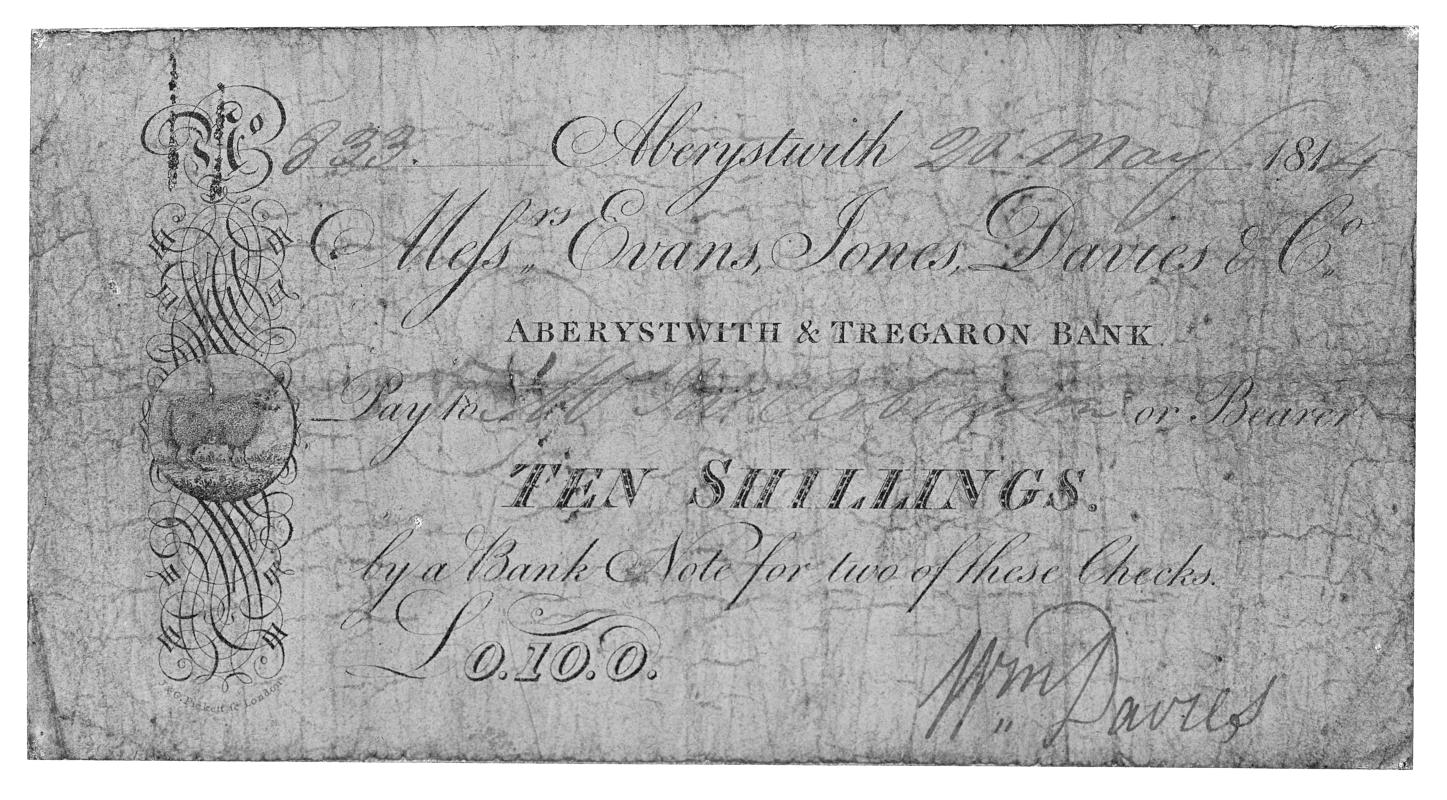 No 833. Aberystwith 20 May 1814
Messrs Evans, Jones, Davies & Co.
ABERYSTWITH & TREGARON BANK.
Pay to Robinson or Bearer
TEN SHILLINGS.
by a Bank Note for two of these Checks.
£0.10.0.
Wm Davies
Pickett London